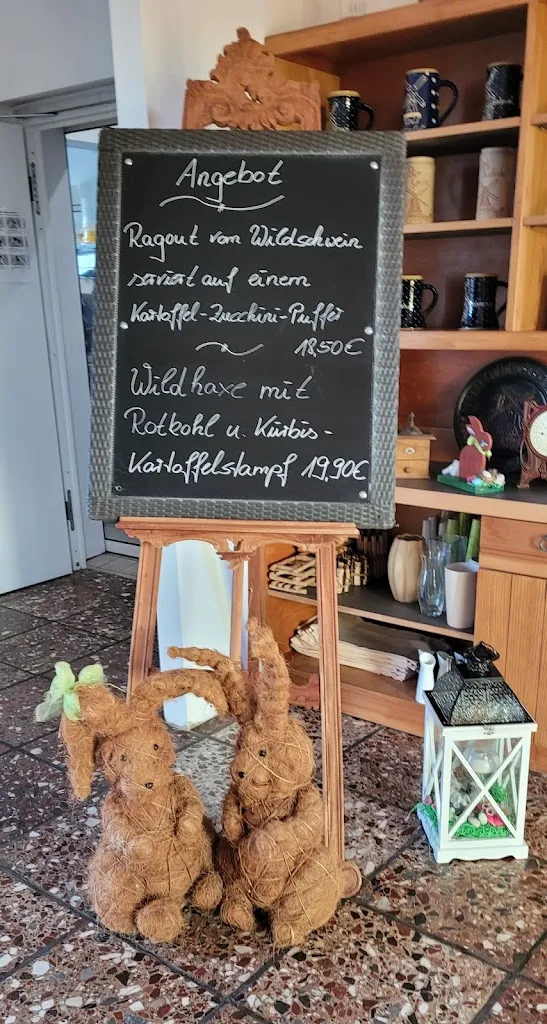 Angebot
Ragout vom Wildschwein
serviert auf einem
Kartoffel-Zucchini-Puffer
18,50€
Wildhaxe mit
Rotkohl u. Kürbis-
Kartoffelstampf 19,90€